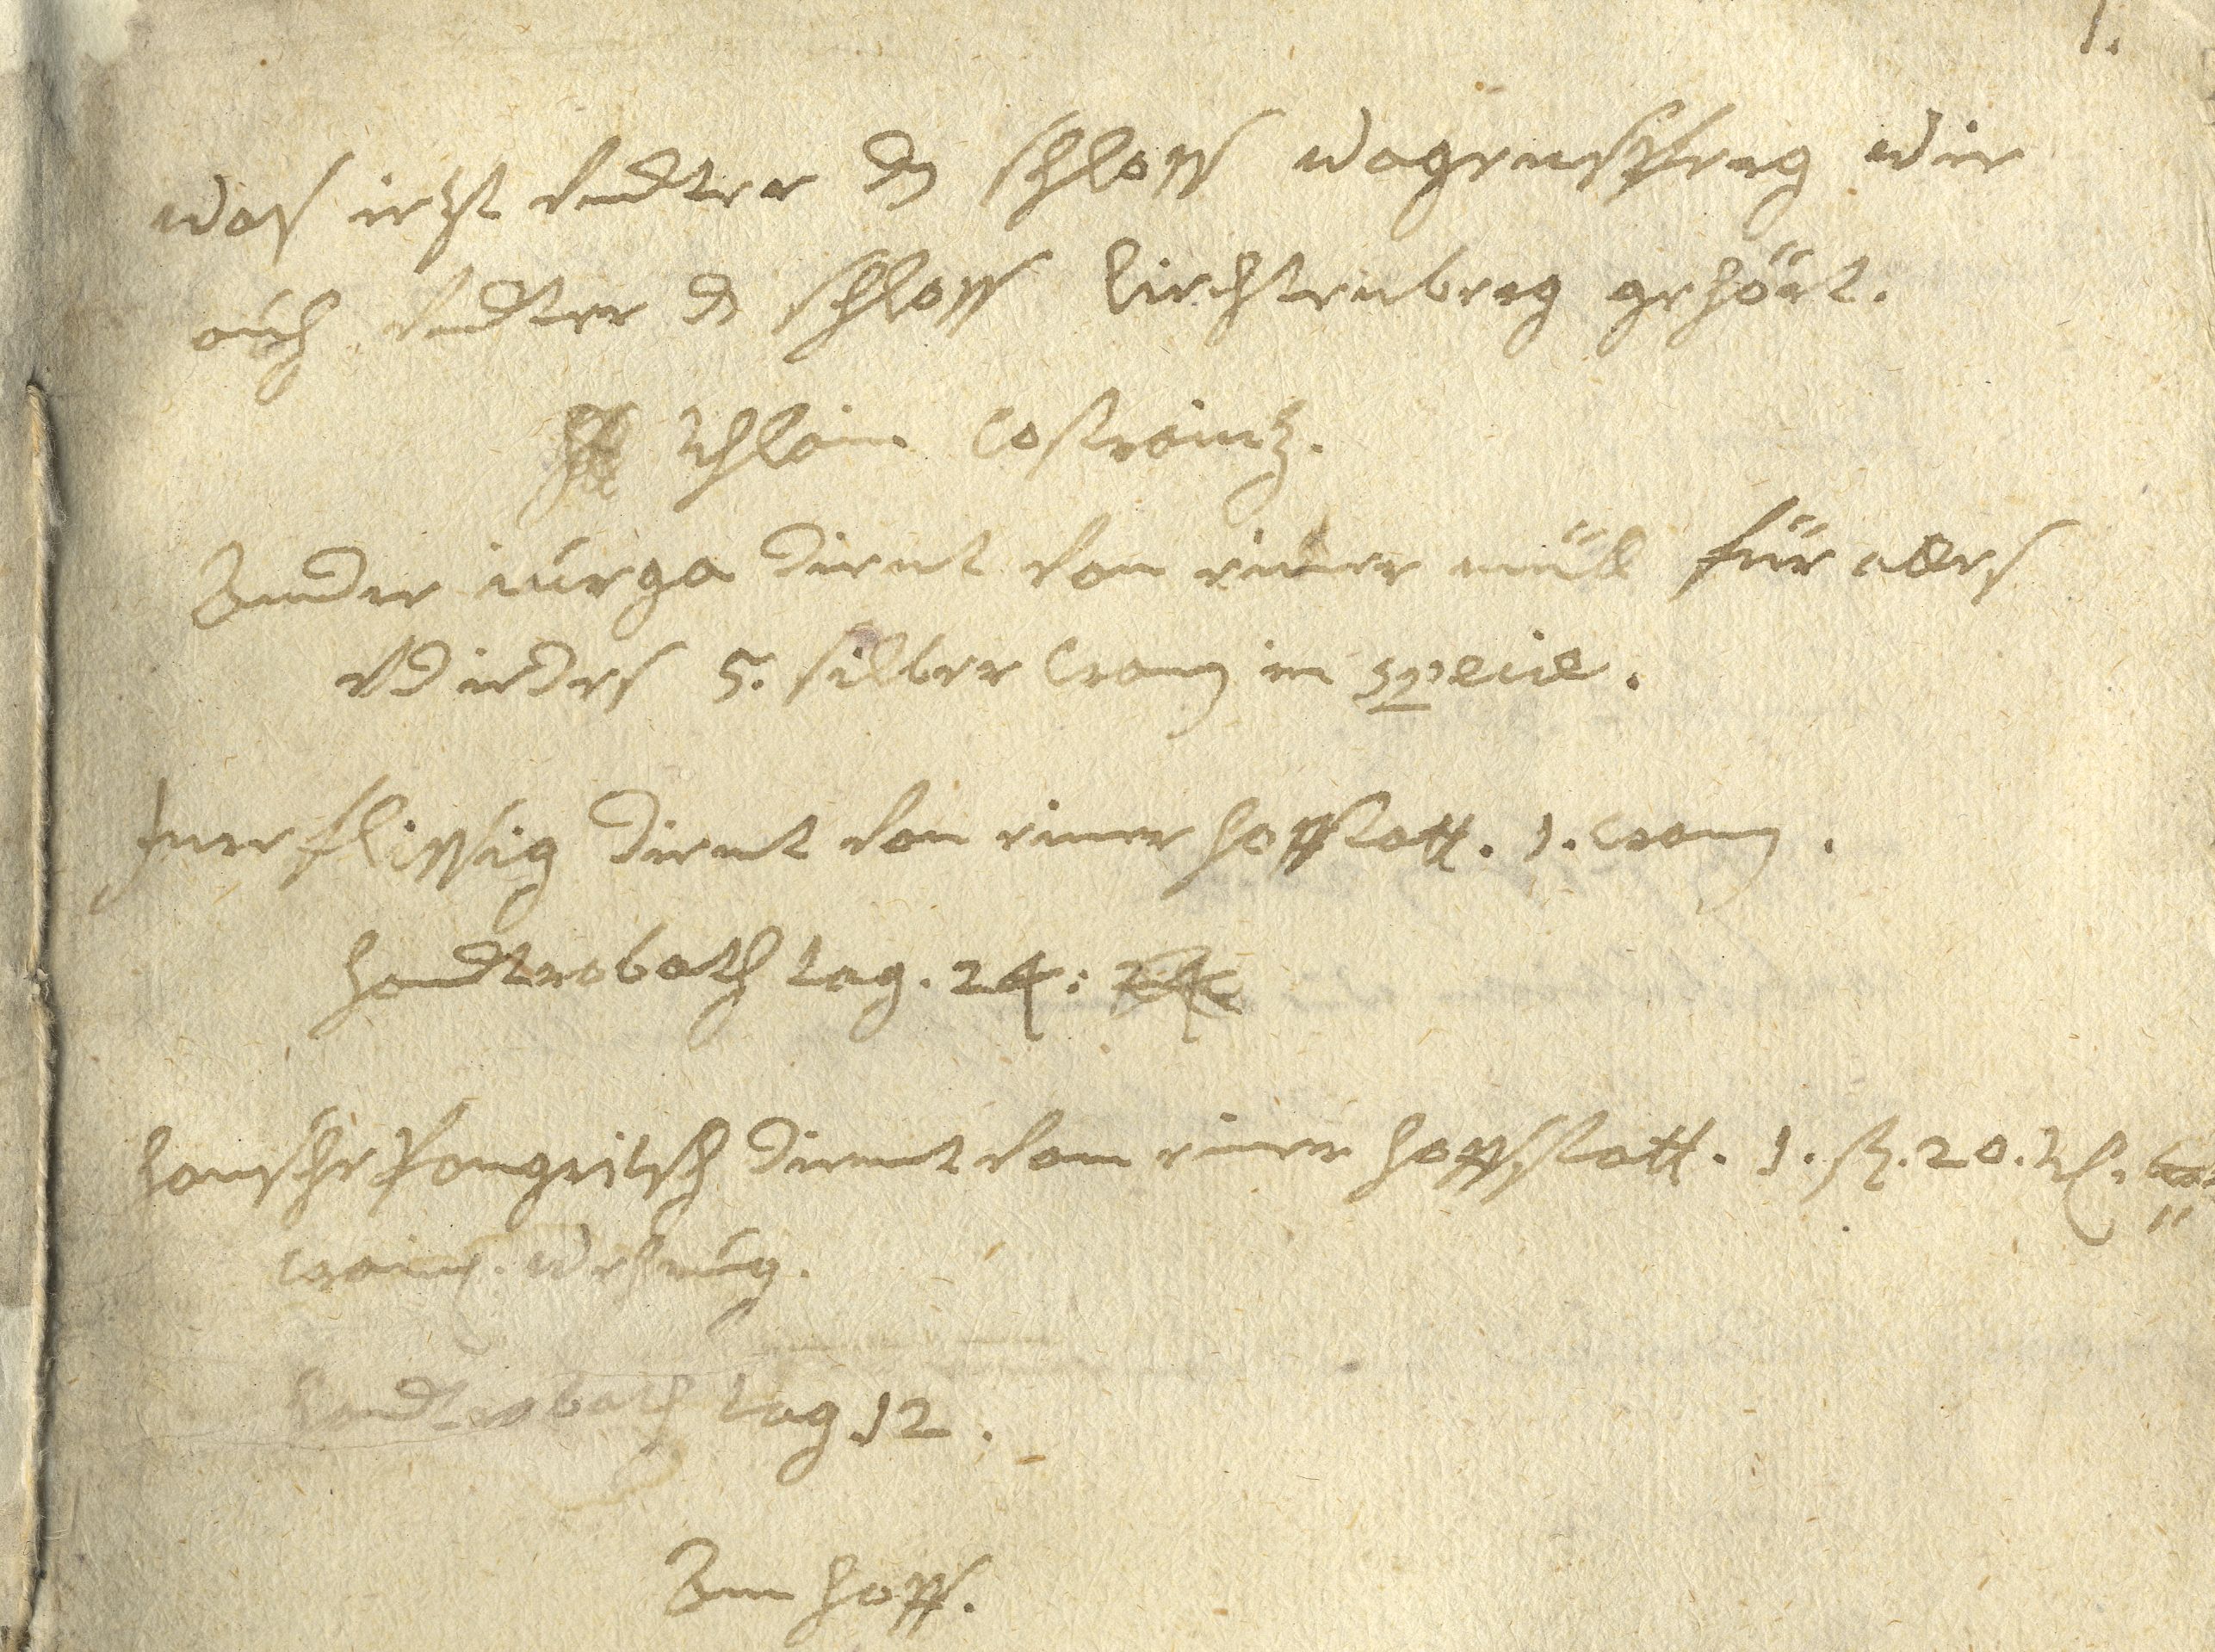 1.
was ietzt vndter dz schloss wagensperg wie
auch vndter dz schloss liechtenberg gehört.
khlain Costrainitz.
Zunder iurga dient von einer mül für alles
vnd iedes 5. silber Cronen in specie.
flissig dient von einer hoffstatt. 1. Cronen.
handtrobath tag. 24:
hansche Pongritsch dient von einer hoffstatt. 1. fl. 20. kr.
crainr. wehrung.
handtrobath tag 12.
Zum hoff.